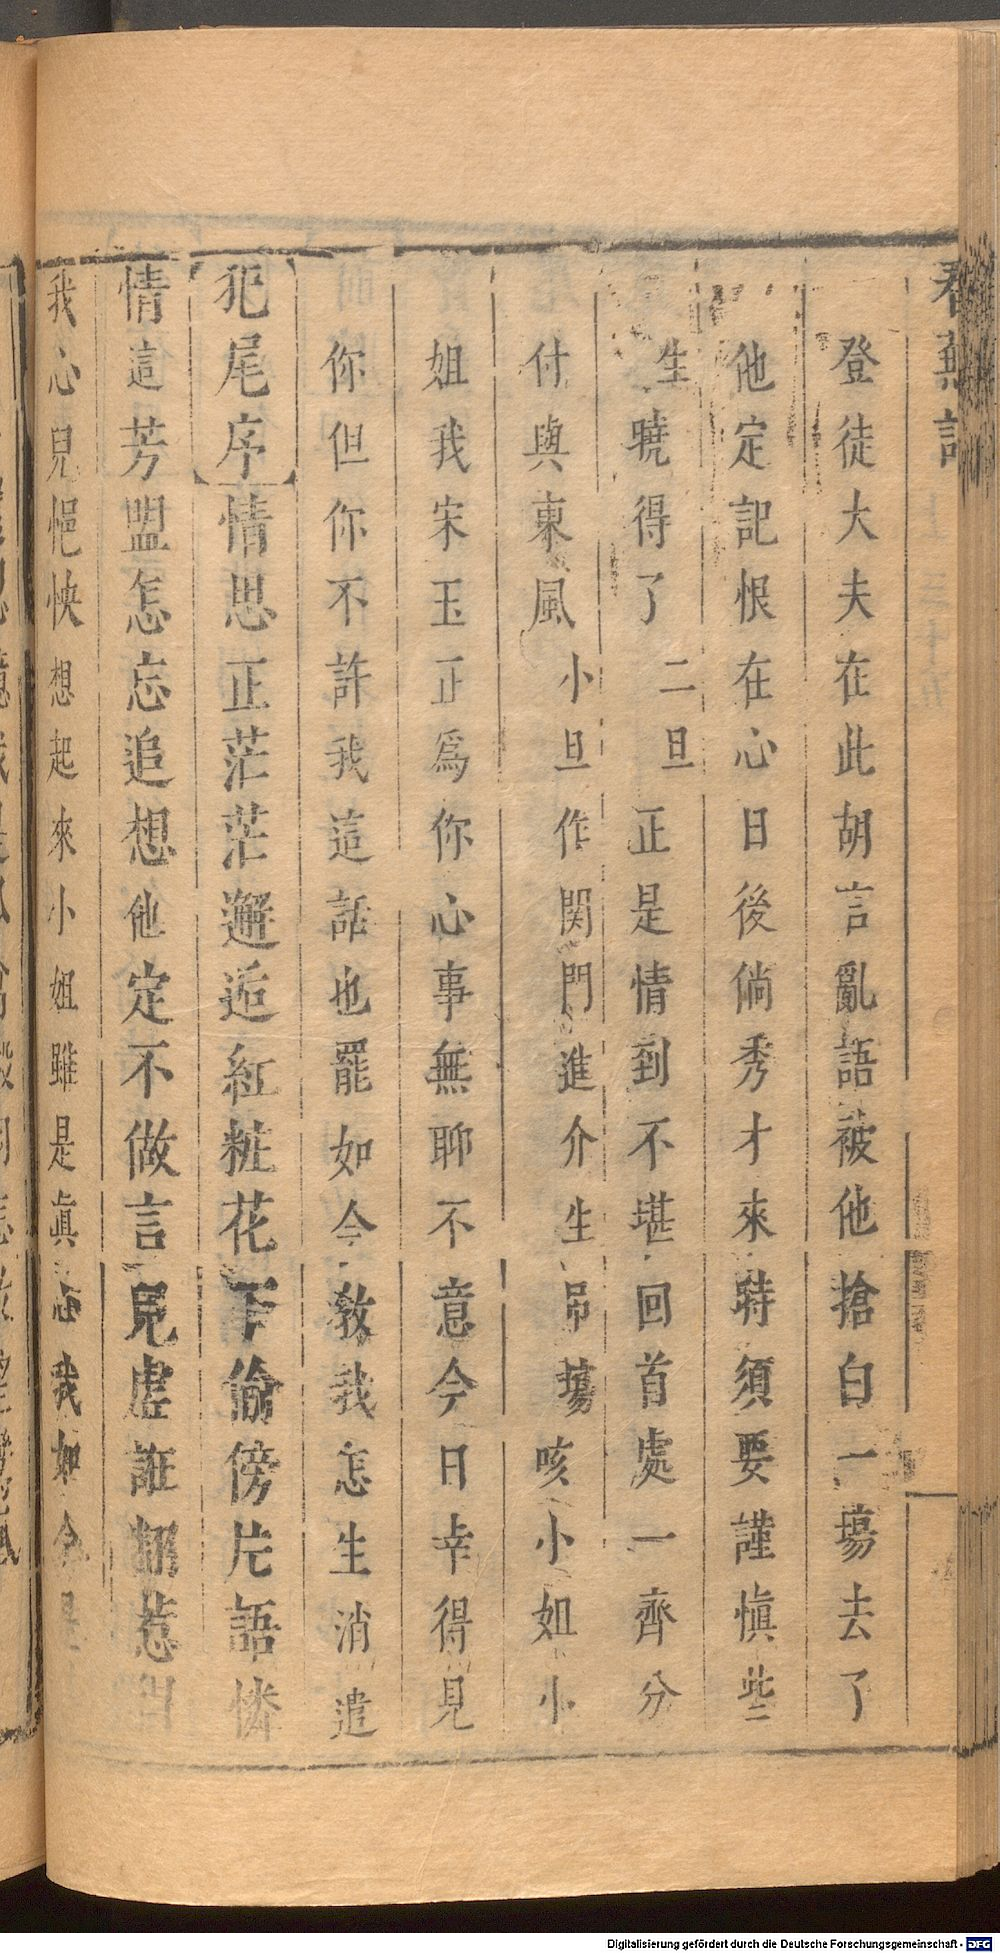 春蕪記
登徒大夫在此胡言亂語被他搶白一塲去了
他定記恨在心日後倘秀才來時須要謹慎些
生曉得了 二旦正是情到不堪回首處一齊分
付與東風 小旦作関門進介生吊塲咳小姐小
姐我宋玉正爲你心事無聊不意今日幸得見
你但你不許我這話也罷如今敎我怎生消遣
犯尾序情思正茫茫邂逅紅粧花下偷傍片語憐
情這芳盟怎忘追想他定不做言兒虚誑招惹得
我心兒悒怏想起來小姐雖是眞心我如今
Digitalisierung gefördert durch die Deutsche Forschungsgemeinschaft - DFG